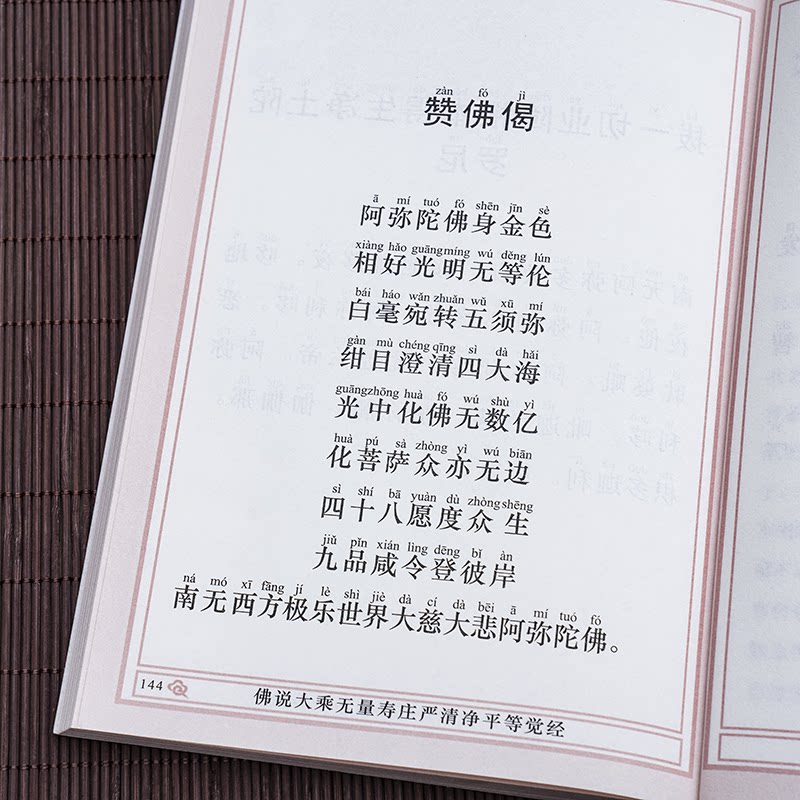 zàn fó jì
赞佛偈
ā mí tuó fó shēn jīn sè
阿弥陀佛身金色
xiàng hǎo guāng míng wú děng lún
相好光明无等伦
bái háo wǎn zhuǎn wǔ xū mí
白毫宛转五须弥
gàn mù chéng qīng sì dà hǎi
绀目澄清四大海
guāng zhōng huà fó wú shù yì
光中化佛无数亿
huà pú sà zhòng yì wú biān
化菩萨众亦无边
sì shí bā yuàn dù zhòng shēng
四十八愿度众生
jiǔ pǐn xián lìng dēng bǐ àn
九品咸令登彼岸
ná mó xī fāng jí lè shì jiè dà cí dà bēi ā mí tuó fó
南无西方极乐世界大慈大悲阿弥陀佛。
144
佛说大乘无量寿庄严清净平等觉经